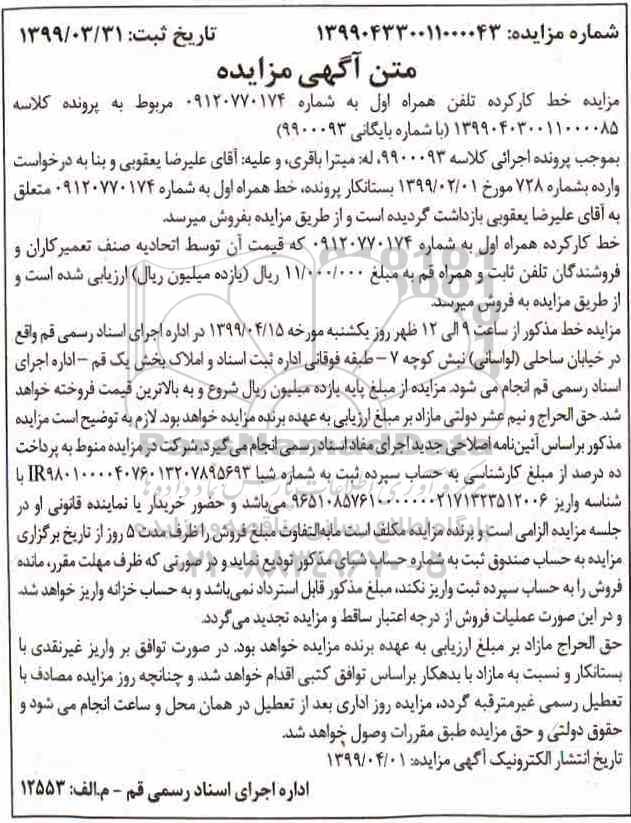 شماره مزایده: ۱۳۹۹۰۴۳۳۰۰۱۱۰۰۰۰۴۳ تاریخ ثبت: ۱۳۹۹/۰۳/۳۱
متن آگهی مزایده
مزایده خط کارکرده تلفن همراه اول به شماره ۰۹۱۲۰۷۷۰۱۷۴ مربوط به پرونده کلاسه
۱۳۹۹۰۴۰۳۰۰۱۱۰۰۰۰۸۵ (با شماره بایگانی ۹۹۰۰۰۹۳)
بموجب پرونده اجرائی کلاسه ۹۹۰۰۰۹۳، له: میترا باقری، و علیه: آقای علیرضا یعقوبی و بنا به درخواست
وارده بشماره ۷۲۸ مورخ ۱۳۹۹/۰۲/۰۱ بستانکار پرونده، خط همراه اول به شماره ۰۹۱۲۰۷۷۰۱۷۴ متعلق
به آقای علیرضا یعقوبی بازداشت گردیده است و از طریق مزایده بفروش میرسد.
خط کارکرده همراه اول به شماره ۰۹۱۲۰۷۷۰۱۷۴ که قیمت آن توسط اتحادیه صنف تعمیرکاران و
فروشندگان تلفن ثابت و همراه قم به مبلغ ۱۱/۰۰۰/۰۰۰ ریال (یازده میلیون ریال) ارزیابی شده است و
از طریق مزایده به فروش میرسد.
مزایده خط مذکور از ساعت ۹ الی ۱۲ ظهر روز یکشنبه مورخه ۱۳۹۹/۰۴/۱۵ در اداره اجرای اسناد رسمی قم واقع
در خیابان ساحلی (لواسانی) نبش کوچه ۷ – طبقه فوقانی اداره ثبت اسناد و املاک بخش یک قم – اداره اجرای
اسناد رسمی قم انجام می شود. مزایده از مبلغ پایه یازده میلیون ریال شروع و به بالاترین قیمت فروخته خواهد
شد. حق الحراج و نیم عشر دولتی مازاد بر مبلغ ارزیابی به عهده برنده مزایده خواهد بود. لازم به توضیح است مزایده
مذکور براساس آئین‌نامه اصلاحی جدید اجرای مفاد اسناد رسمی انجام می‌گیرد. شرکت در مزایده منوط به پرداخت
ده درصد از مبلغ کارشناسی به حساب سپرده ثبت به شماره شبا IR۹۸۰۱۰۰۰۰۴۰۷۶۰۱۳۲۰۷۸۹۵۶۹۳ با
شناسه واریز ۹۶۵۱۰۸۵۷۶۱۰۰۰۰۰۰۰۰۲۱۷۱۳۲۳۵۱۲۰۰۶ می‌باشد و حضور خریدار یا نماینده قانونی او در
جلسه مزایده الزامی است و برنده مزایده مکلف است مابه‌التفاوت مبلغ فروش را ظرف مدت ۵ روز از تاریخ برگزاری
مزایده به حساب صندوق ثبت به شماره حساب شبای مذکور تودیع نماید و در صورتی که ظرف مهلت مقرر، مانده
فروش را به حساب سپرده ثبت واریز نکند، مبلغ مذکور قابل استرداد نمی‌باشد و به حساب خزانه واریز خواهد شد.
و در این صورت عملیات فروش از درجه اعتبار ساقط و مزایده تجدید می‌گردد.
حق الحراج مازاد بر مبلغ ارزیابی به عهده برنده مزایده خواهد بود. در صورت توافق بر واریز غیرنقدی با
بستانکار و نسبت به مازاد با بدهکار براساس توافق کتبی اقدام خواهد شد. و چنانچه روز مزایده مصادف با
تعطیل رسمی غیرمترقبه گردد، مزایده روز اداری بعد از تعطیل در همان محل و ساعت انجام می شود و
حقوق دولتی و حق مزایده طبق مقررات وصول خواهد شد.
تاریخ انتشار الکترونیک آگهی مزایده: ۱۳۹۹/۰۴/۰۱
اداره اجرای اسناد رسمی قم - م.الف: ۱۲۵۵۳